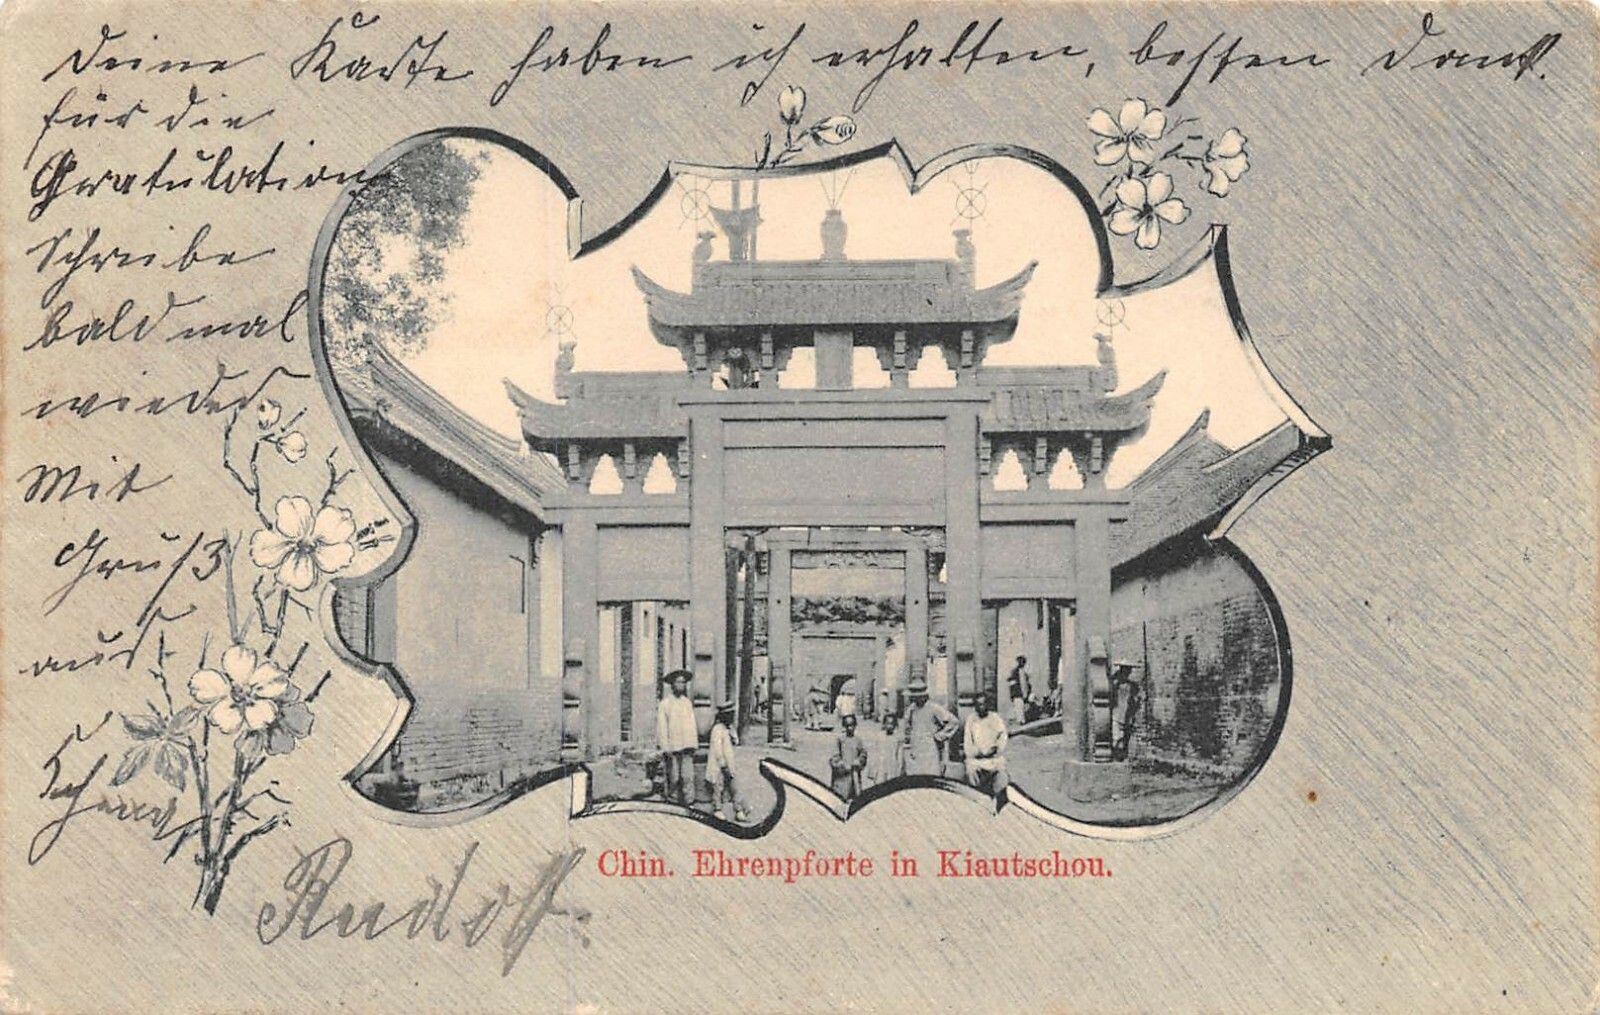 Deine Karte haben ich erhalten, besten Dank.
für die
Gratulation
Schreibe
bald mal
wieder
Mit
Gruß
aus
Rudolf.
Chin. Ehrenpforte in Kiautschou.